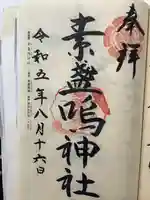 奉拝
素盞嗚神社
令和五年八月十六日